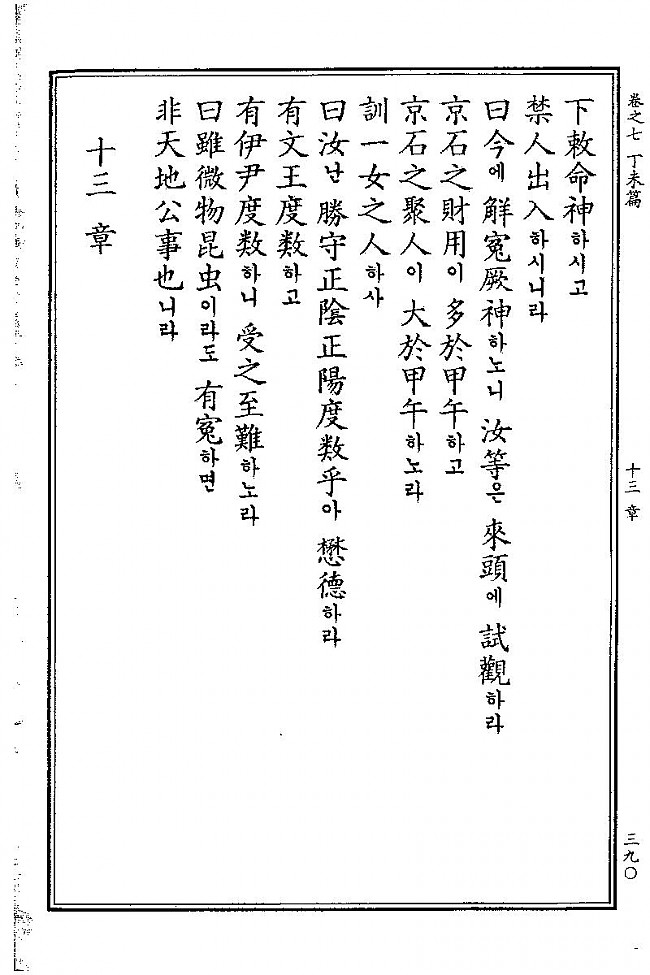 卷之七 丁未篇
十三 章
三九〇
下敕命神하시고
禁人出入하시니라
曰今에 解寃厥神하노니 汝等은 來頭에 試觀하라
京石之財用이 多於甲午하고
京石之聚人이 大於甲午하노라
訓一女之人하사
曰汝난 勝守正陰正陽度数乎아 懋德하라
有文王度数하고
有伊尹度数하니 受之至難하노라
曰雖微物昆虫이라도 有寃하면
非天地公事也니라
十三 章